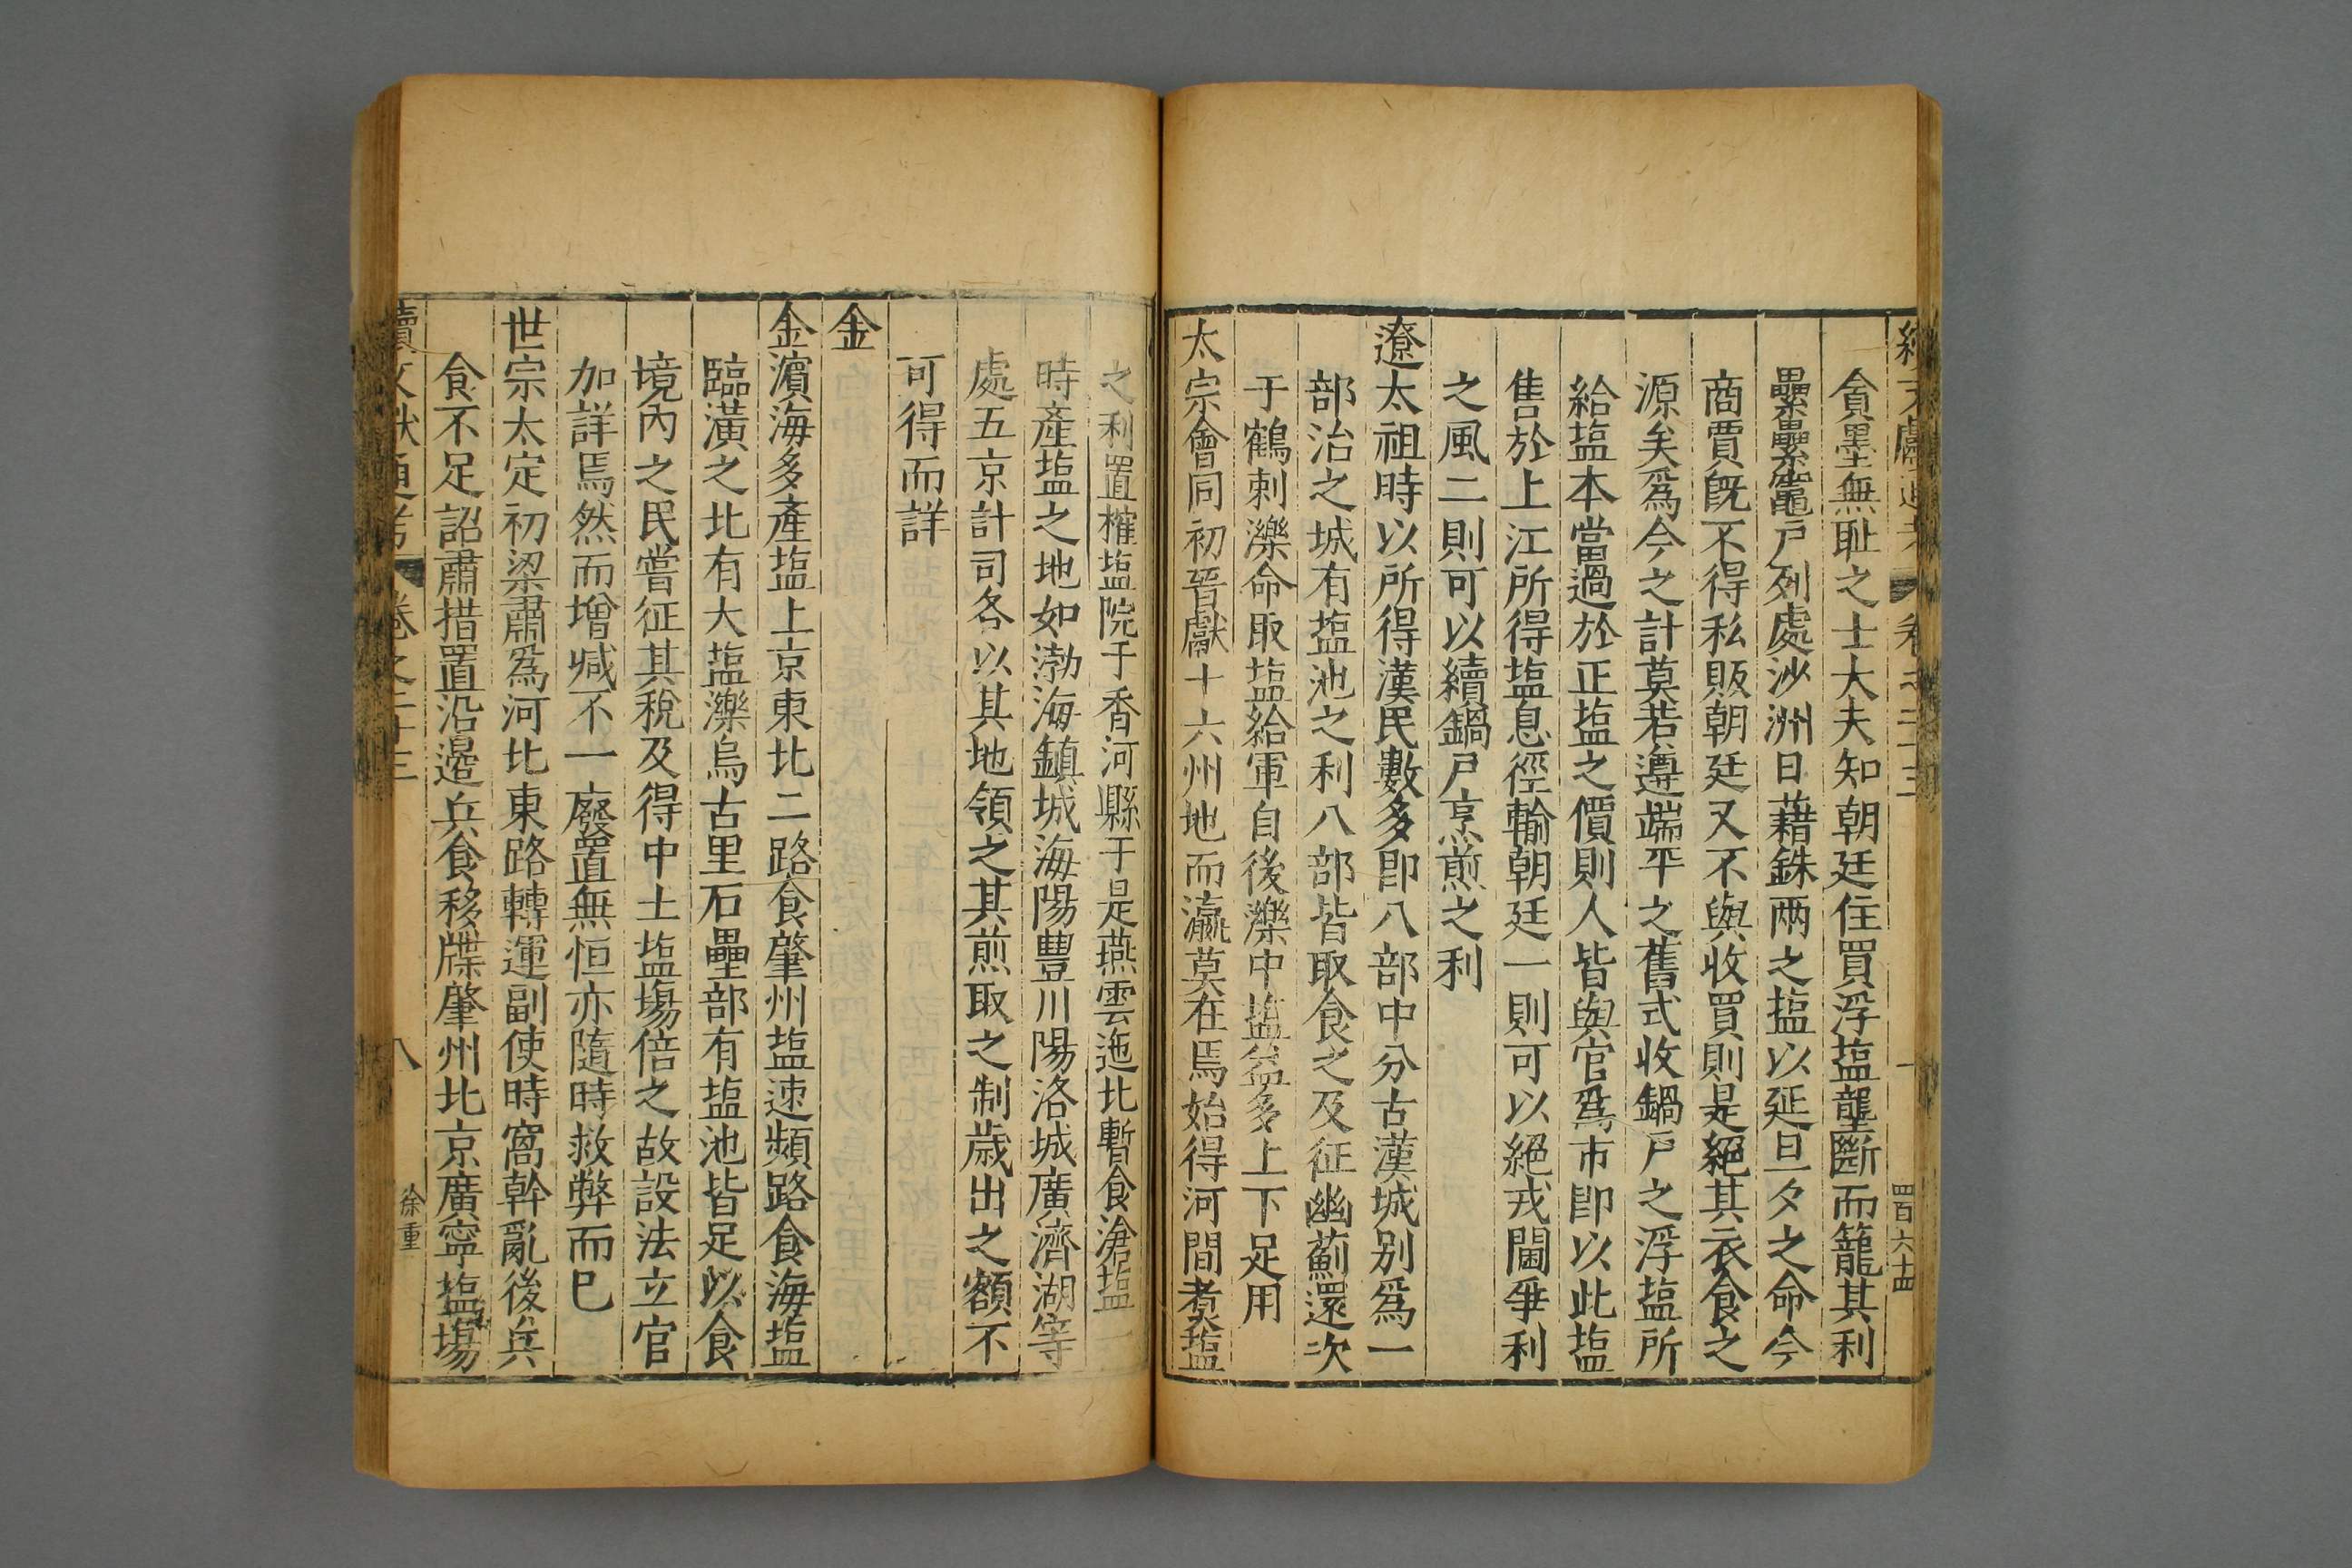 貪墨無耻之士大夫知朝廷住買浮塩壟斷而籠其利
纍纍竈戸列處沙洲日藉銖两之塩以延旦夕之命今
商賈旣不得私販朝廷又不與收買則是絕其衣食之
源矣爲今之計莫若遵端平之舊式收鍋戸之浮塩所
給塩本當過於正塩之價則人皆與官爲市卽以此塩
售於上江所得塩息徑輸朝廷一則可以絕戎閫爭利
之風二則可以續鍋戸烹煎之利
遼太祖時以所得漢民數多卽八部中分古漢城别爲一
部治之城有塩池之利八部皆取食之及征幽薊還次
于鶴剌濼命取塩給軍自後濼中塩益多上下足用
太宗會同初晉獻十六州地而瀛莫在焉始得河間煑塩
之利置榷塩院于香河縣于是燕雲迤北暫食滄塩一
時產塩之地如渤海鎮城海陽豊川陽洛城廣濟湖等
處五京計司各以其地領之其煎取之制歳出之額不
可得而詳
金
金濵海多產塩上京東北二路食肇州塩速頻路食海塩
臨潢之北有大塩濼烏古里石壘部有塩池皆足以食
境內之民嘗征其稅及得中土塩塲倍之故設法立官
加詳焉然而增减不一廢置無恒亦隨時救弊而已
世宗太定初梁肅爲河北東路轉運副使時窩幹亂後兵
食不足詔肅措置沿邉兵食移牒肇州北京廣寧塩塲
續文獻通考 卷之二十三 八 徐重
四百六十四